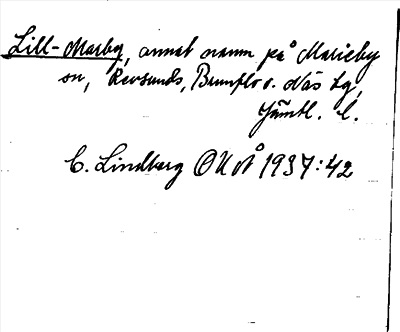 Lill-Marby, annat namn på Marieby
sn, Revsunds, Brunflo o. Näs tg,
Jämtl. l.
C. Lindberg OUÅ 1937:42